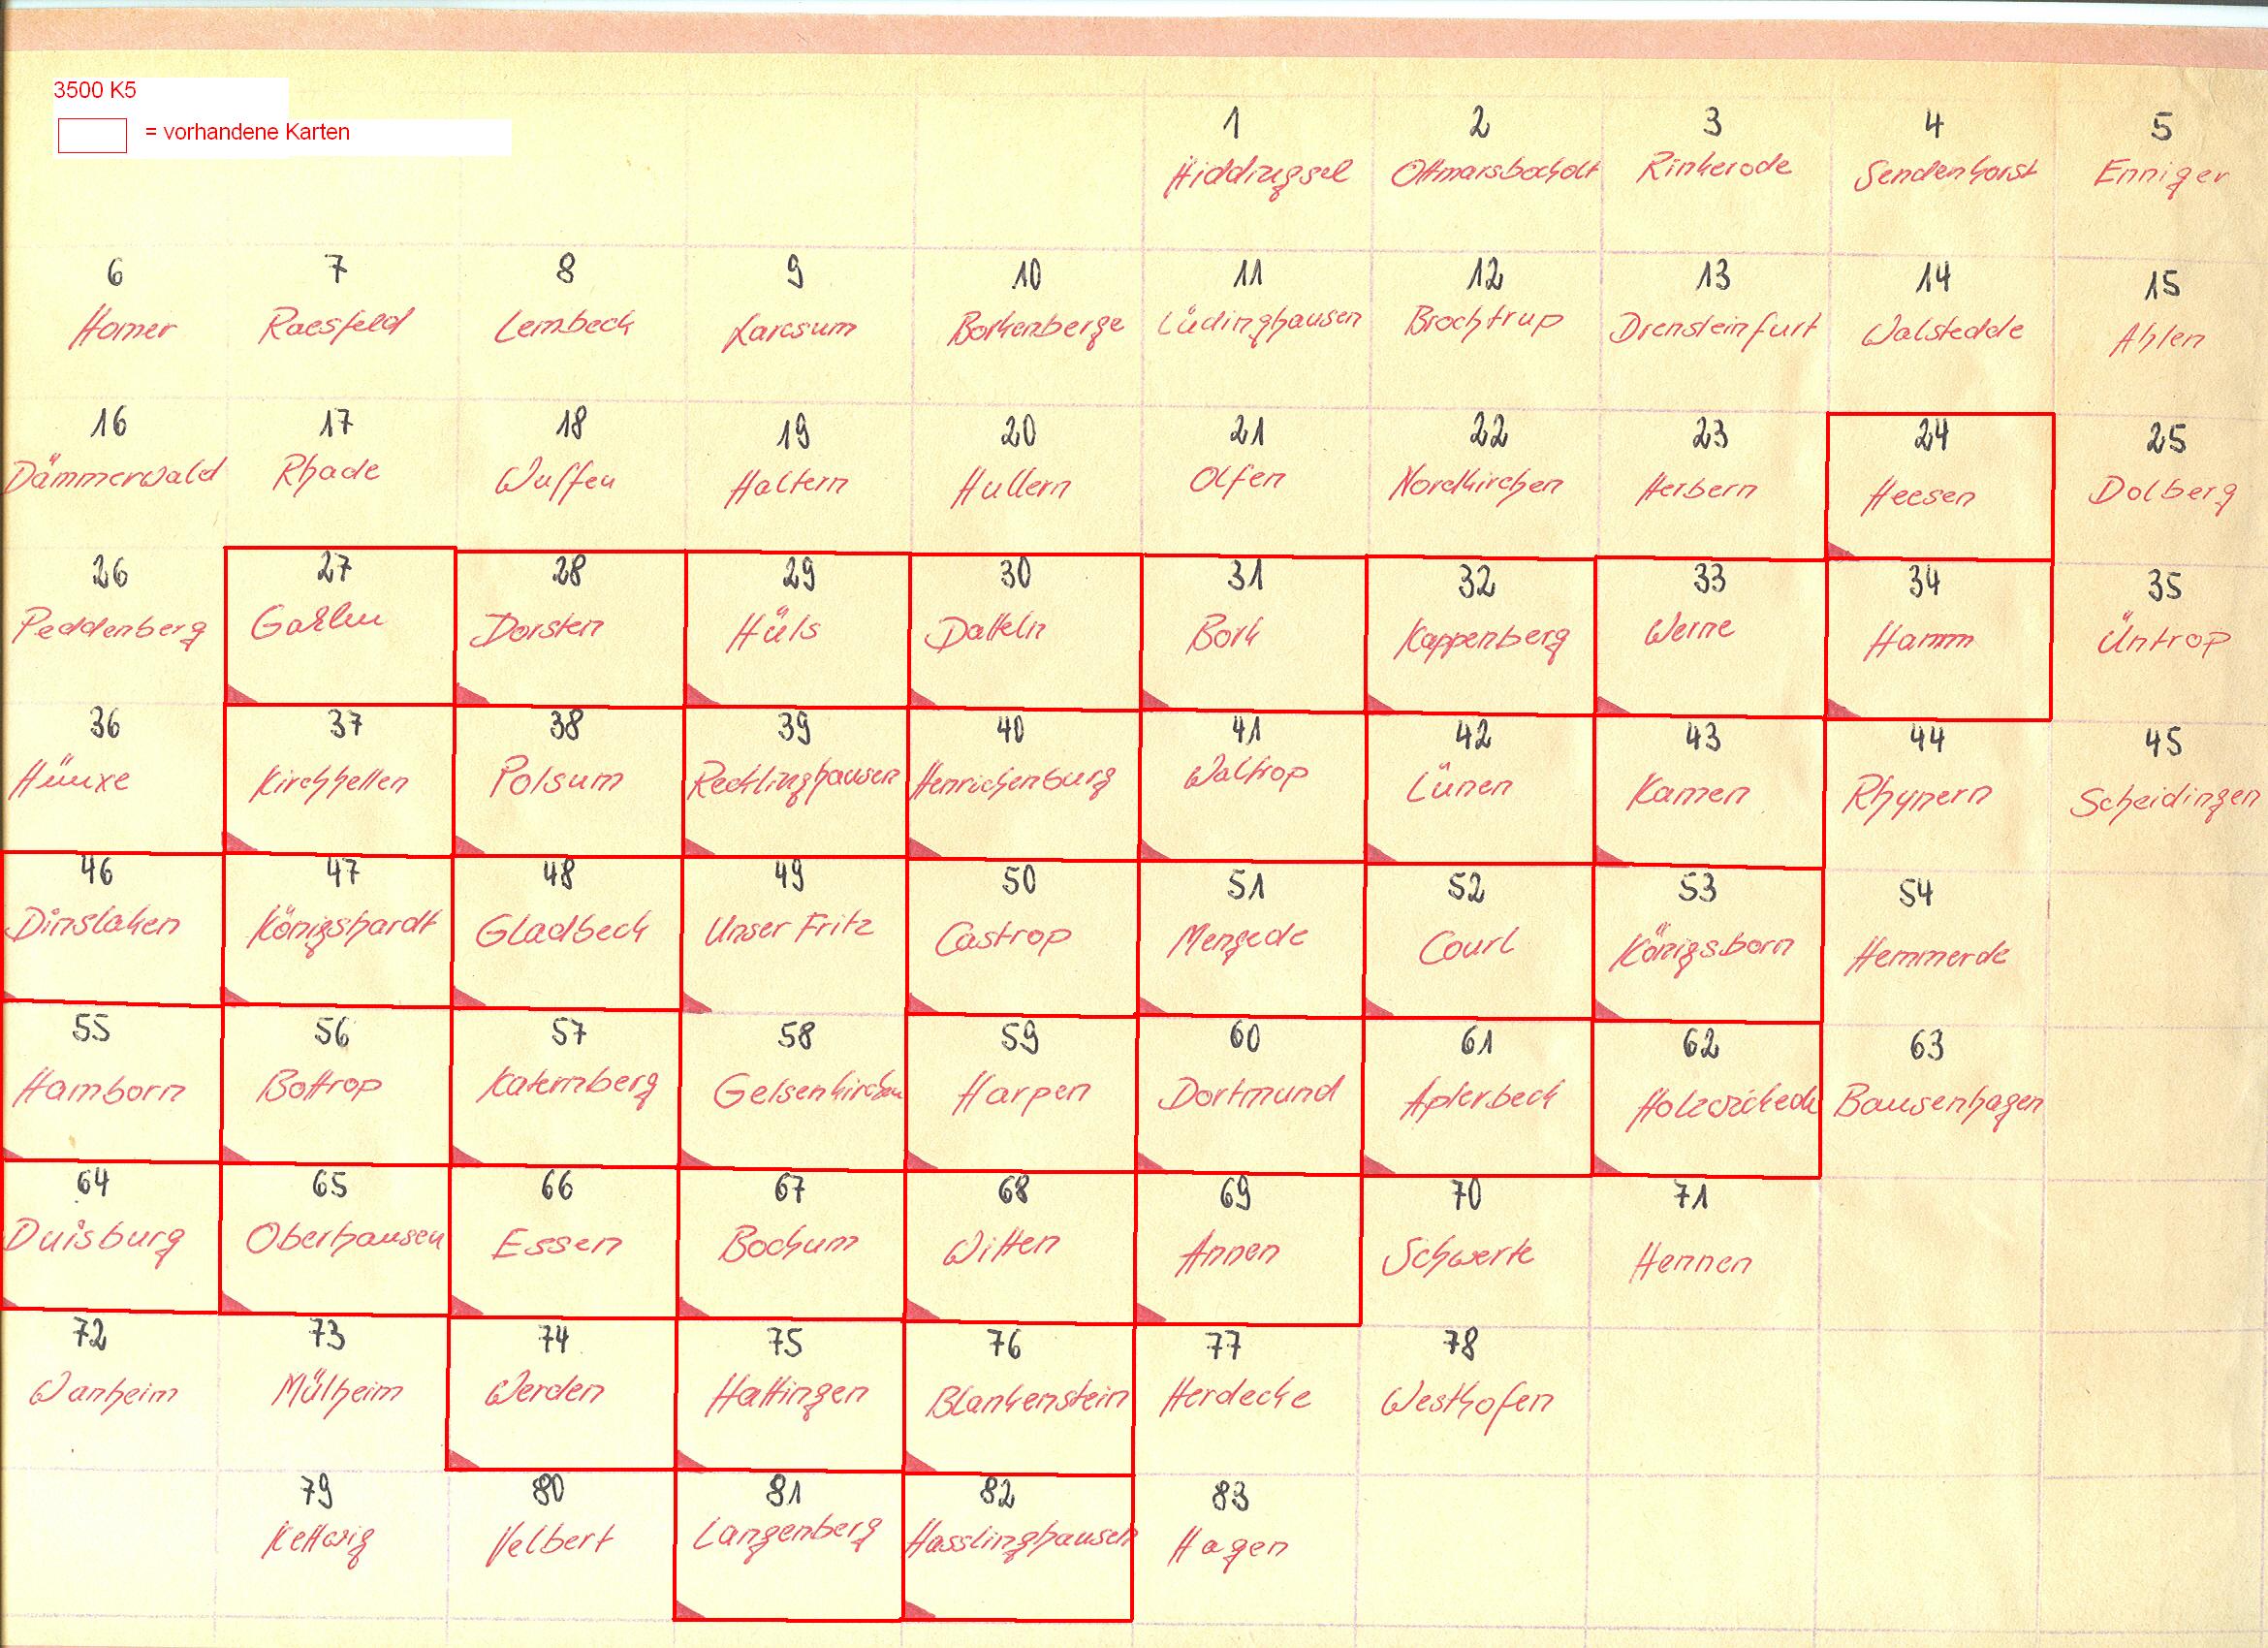 3500 K5
= vorhandene Karten
1 2 3 4 5
Hiddingsel Ottmarsbocholt Rinkerode Sendenhorst Enniger
6 7 8 9 10 11 12 13 14 15
Homer Raesfeld Lembeck Lavesum Borkenberge Lüdinghausen Brochtrup Drensteinfurt Walstedde Ahlen
16 17 18 19 20 21 22 23 24 25
Dämmerwald Rhade Wulfen Haltern Hullern Olfen Nordkirchen Herbern Heesen Dolberg
26 27 28 29 30 31 32 33 34 35
Peddenberg Gahlen Dorsten Hüls Datteln Bork Kappenberg Werne Hamm Üntrop
36 37 38 39 40 41 42 43 44 45
Hünxe Kirchhellen Polsum Recklinghausen Henrichenburg Waltrop Lünen Kamen Rhynern Scheidingen
46 47 48 49 50 51 52 53 54
Dinslaken Königshardt Gladbeck Unser Fritz Castrop Mengede Courl Königsborn Hemmerde
55 56 57 58 59 60 61 62 63
Hamborn Bottrop Katernberg Gelsenkirchen Harpen Dortmund Aplerbeck Holzwickede Bausenhagen
64 65 66 67 68 69 70 71
Duisburg Oberhausen Essen Bochum Witten Annen Schwerte Hennen
72 73 74 75 76 77 78
Wanheim Mülheim Werden Hattingen Blankenstein Herdecke Westhofen
79 80 81 82 83
Kettwig Velbert Langenberg Hasslinghausen Hagen